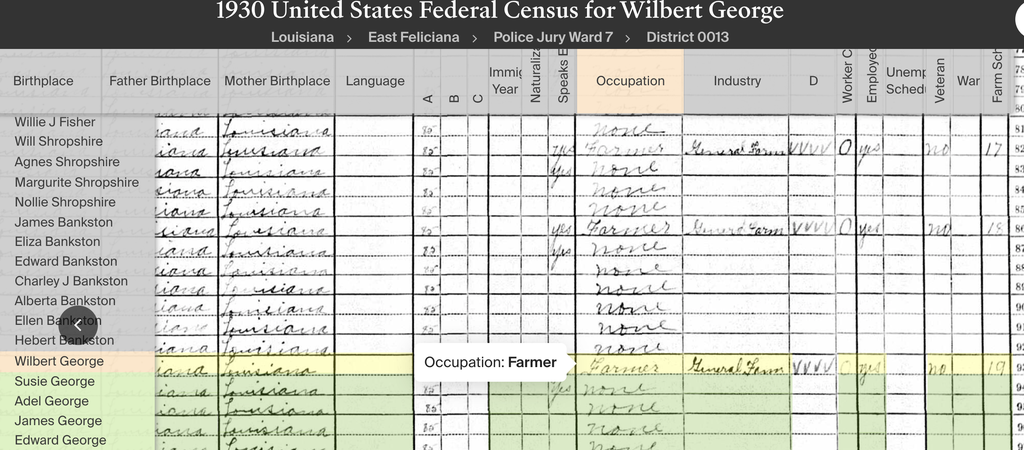 1930 United States Federal Census for Wilbert George
Louisiana > East Feliciana > Police Jury Ward 7 > District 0013
Birthplace Father Birthplace Mother Birthplace Language A B C Immig Year Naturaliza Speaks E Occupation Industry D Worker C Employed Unemp Schedu Veteran War Farm Sch
Willie J Fisher Louisiana 80 none
Will Shropshire Louisiana 80 yes Farmer General Farm VVVV O yes no 17
Agnes Shropshire Louisiana 80 yes none
Margurite Shropshire Louisiana 80 none
Nollie Shropshire Louisiana 80 none
James Bankston Louisiana 80 yes Farmer General Farm VVVV O yes no 18
Eliza Bankston Louisiana 80 yes none
Edward Bankston Louisiana 80 none
Charley J Bankston Louisiana 80 none
Alberta Bankston Louisiana 80 none
Ellen Bankston Louisiana 80 none
Hebert Bankston Louisiana none
Wilbert George Louisiana Occupation: Farmer Farmer General Farm VVVV O yes no 19
Susie George Louisiana 80 yes none
Adel George Louisiana 80 none
James George Louisiana 80 none
Edward George Louisiana 80 none